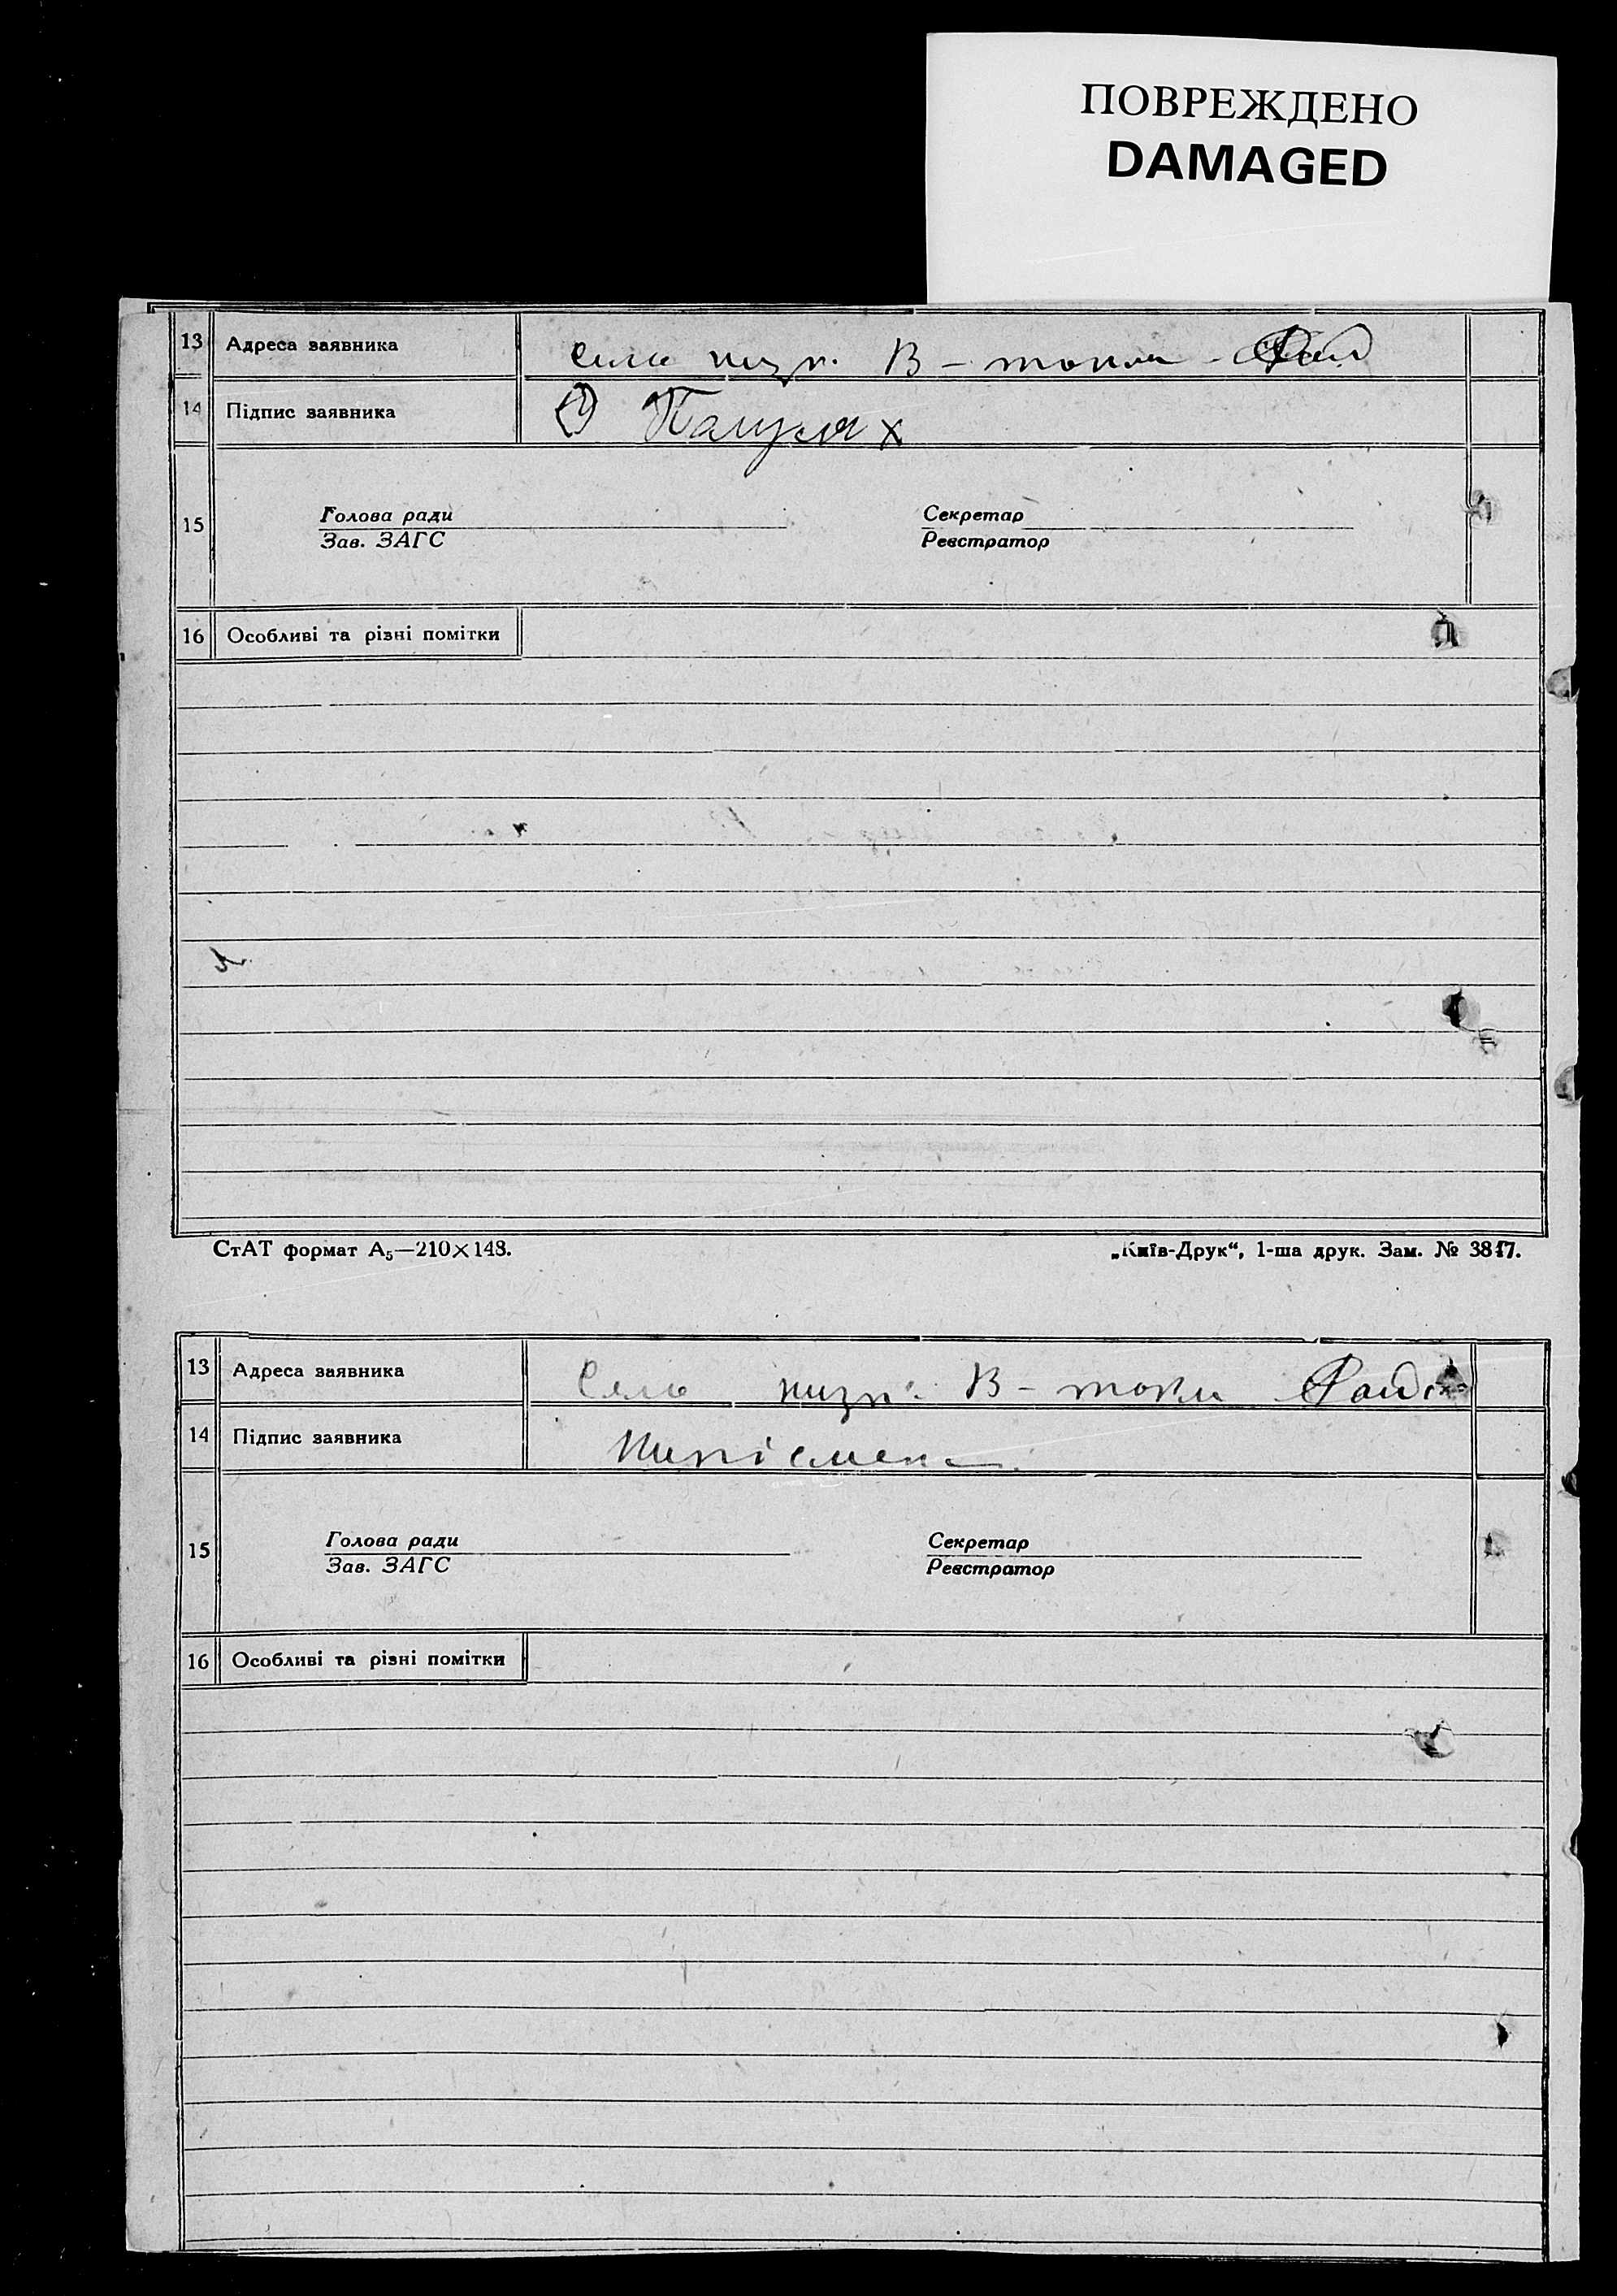 ПОВРЕЖДЕНО
DAMAGED
13 Адреса заявника село низп. В-токи Рай
14 Підпис заявника
15 Голова ради Секретар
Зав. ЗАГС Реєстратор
16 Особливі та різні помітки
СтАТ формат А5—210×148. „Київ-Друк“, 1-ша друк. Зам. № 3847.
13 Адреса заявника Село низп. В-токи
14 Підпис заявника
15 Голова ради Секретар
Зав. ЗАГС Реєстратор
16 Особливі та різні помітки